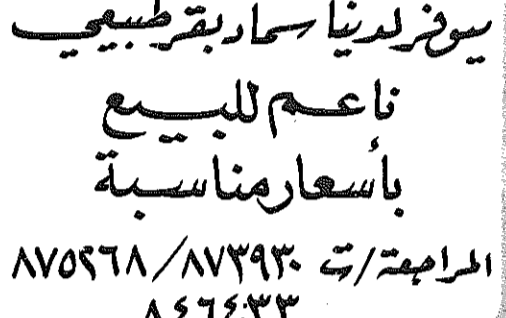 يتوفر لدينا سماد بقر طبيعي
ناعم للبيع
بأسعار مناسبة
المراجعة/ت ٨٧٣٩٣٠/٨٧٥٢٦٨
٨٤٦٤٣٣